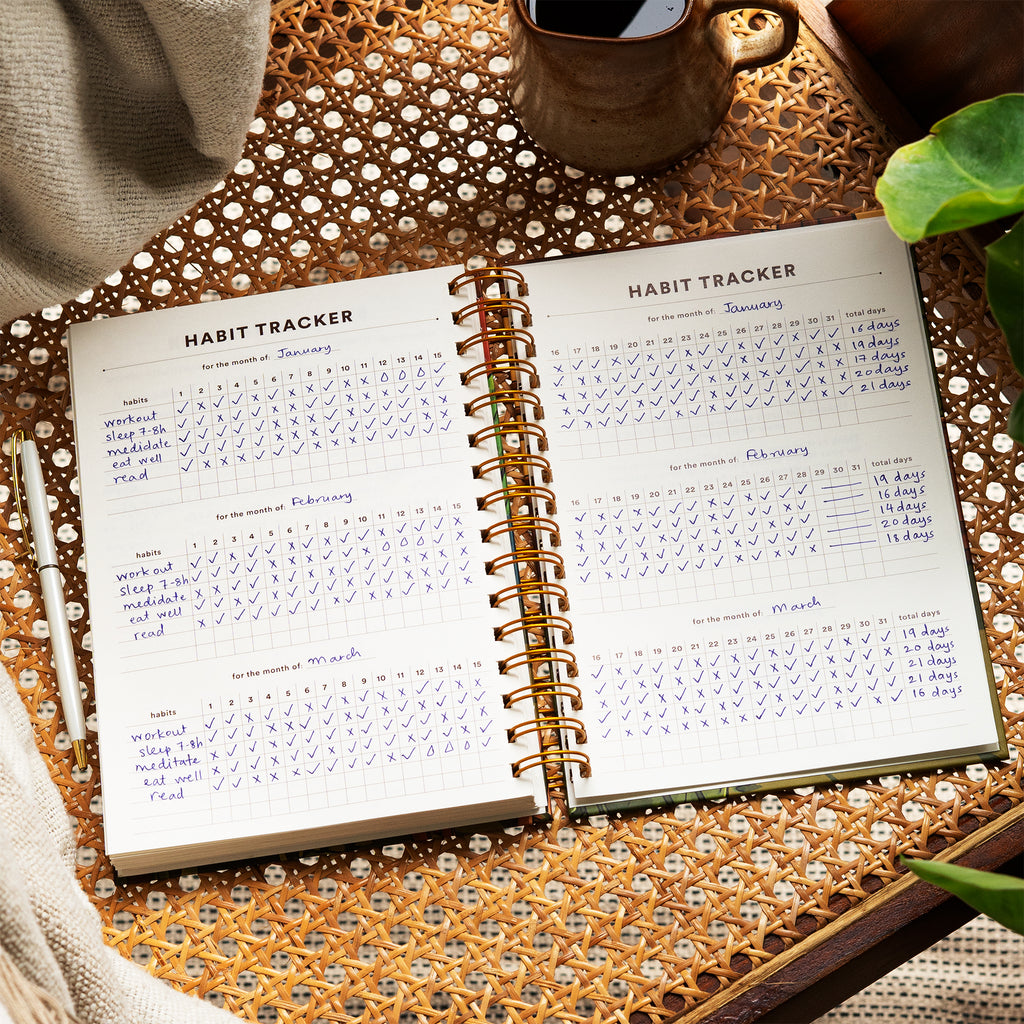 HABIT TRACKER
for the month of: January
habits 1 2 3 4 5 6 7 8 9 10 11 12 13 14 15
workout
sleep 7-8h
medidate
eat well
read
for the month of: February
habits 1 2 3 4 5 6 7 8 9 10 11 12 13 14 15
work out
sleep 7-8h
medidate
eat well
read
for the month of: March
habits 1 2 3 4 5 6 7 8 9 10 11 12 13 14 15
workout
sleep 7-8h
meditate
eat well
read
HABIT TRACKER
for the month of: January
16 17 18 19 20 21 22 23 24 25 26 27 28 29 30 31 total days
16 days
19 days
17 days
20 days
21 days
for the month of: February
16 17 18 19 20 21 22 23 24 25 26 27 28 29 30 31 total days
19 days
16 days
14 days
20 days
18 days
for the month of: March
16 17 18 19 20 21 22 23 24 25 26 27 28 29 30 31 total days
19 days
20 days
21 days
21 days
16 days